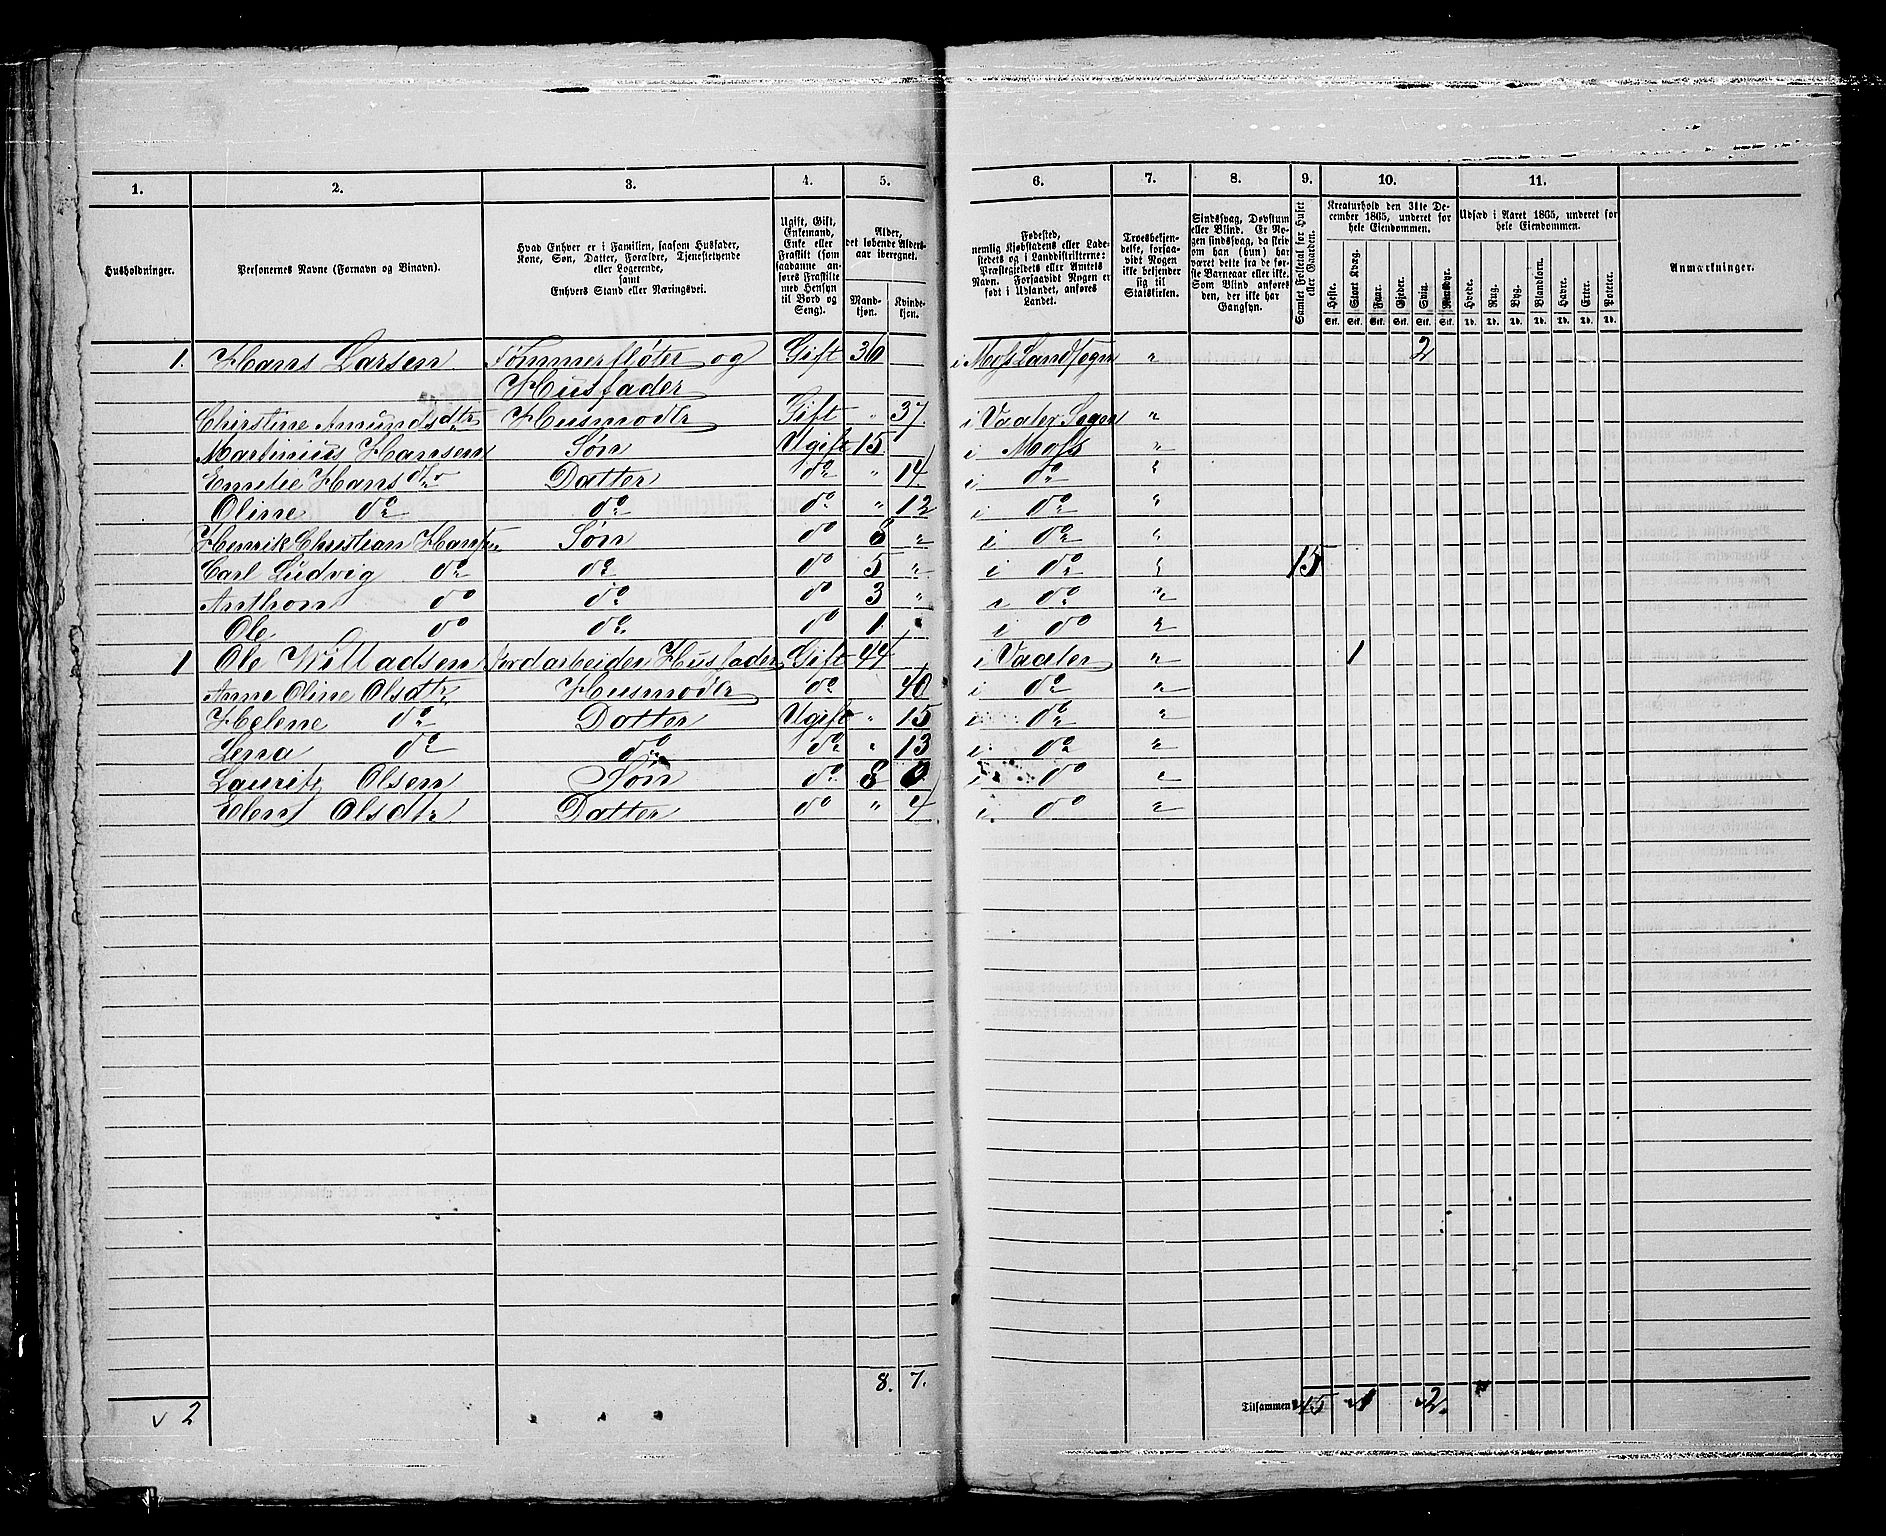 1. 2. 3. 4. 5. 6. 7. 8. 9. 10. 11.
Husholdninger.
Personernes Navne (Fornavn og Binavn).
Hvad Enhver er i Familien, saasom Husfader, Kone, Søn, Datter, Forældre, Tjenestetyende eller Logerende, samt Enhvers Stand eller Næringsvei.
Ugift, Gift, Enkemand, Enke eller Fraskilt (som saadanne anføres Fraskilte med Hensyn til Bord og Seng).
Alder, det løbende Alders-aar iberegnet.
Mand-kjøn. Kvinde-kjøn.
Fødested, nemlig Kjøbstadens eller Ladestedets og i Landdistrikterne: Præstegjeldets eller Amtets Navn. Forsaavidt Nogen er født i Udlandet, anføres Landet.
Troesbekjendelse, forsaavidt Nogen ikke bekjender sig til Statskirken.
Sindssvag, Døvstum eller Blind. Er Nogen sindssvag, da skriv om han (hun) har været dette fra de første Barneaar eller ikke. Som Blind anføres den, der ikke har Gangsyn.
Samlet Folketal for Huset eller Gaarden.
Kreaturhold den 31te December 1865, underet for hele Eiendommen.
Heste. Stort Kvæg. Faar. Gjeder. Sviin. Rensdyr.
Stk. Stk. Stk. Stk. Stk. Stk.
Udsæd i Aaret 1865, underet for hele Eiendommen.
Hvede. Rug. Byg. Blandkorn. Havre. Erter. Poteter.
Td. Td. Td. Td. Td. Td. Td.
Anmærkninger.
1. Hans Larsen Tømmerfløter og Gift 36 i Moss Landsogn " 2
Husfader
Christine Amundsdtr Husmodr Gift " 37 i Vaaler Sogn "
Martinius Hansen Søn Ugift 15 i Moss "
Emilie Hansdtr Datter do " 14 i do "
Oline do do do " 12 i do "
Henrik Christian Hansen Søn do 8 " i do "
Carl Ludvig do do do 5 " i do " 15
Anthon do do do 3 " i do "
Ole do do do 1 " i do "
1 Ole Willadsen Jordarbeider Husfader Gift 44 i Vaaler " 1
Anne Oline Olsdtr Husmodr do " 40 i do "
Helene do Datter Ugift " 15 i do "
Lena do do do " 13 i do "
Lauritz Olsen Søn do 8 0 i do "
Elen Olsdtr Datter do " 4 i do "
8. 7.
v 2
Tilsammen 15 1 2.